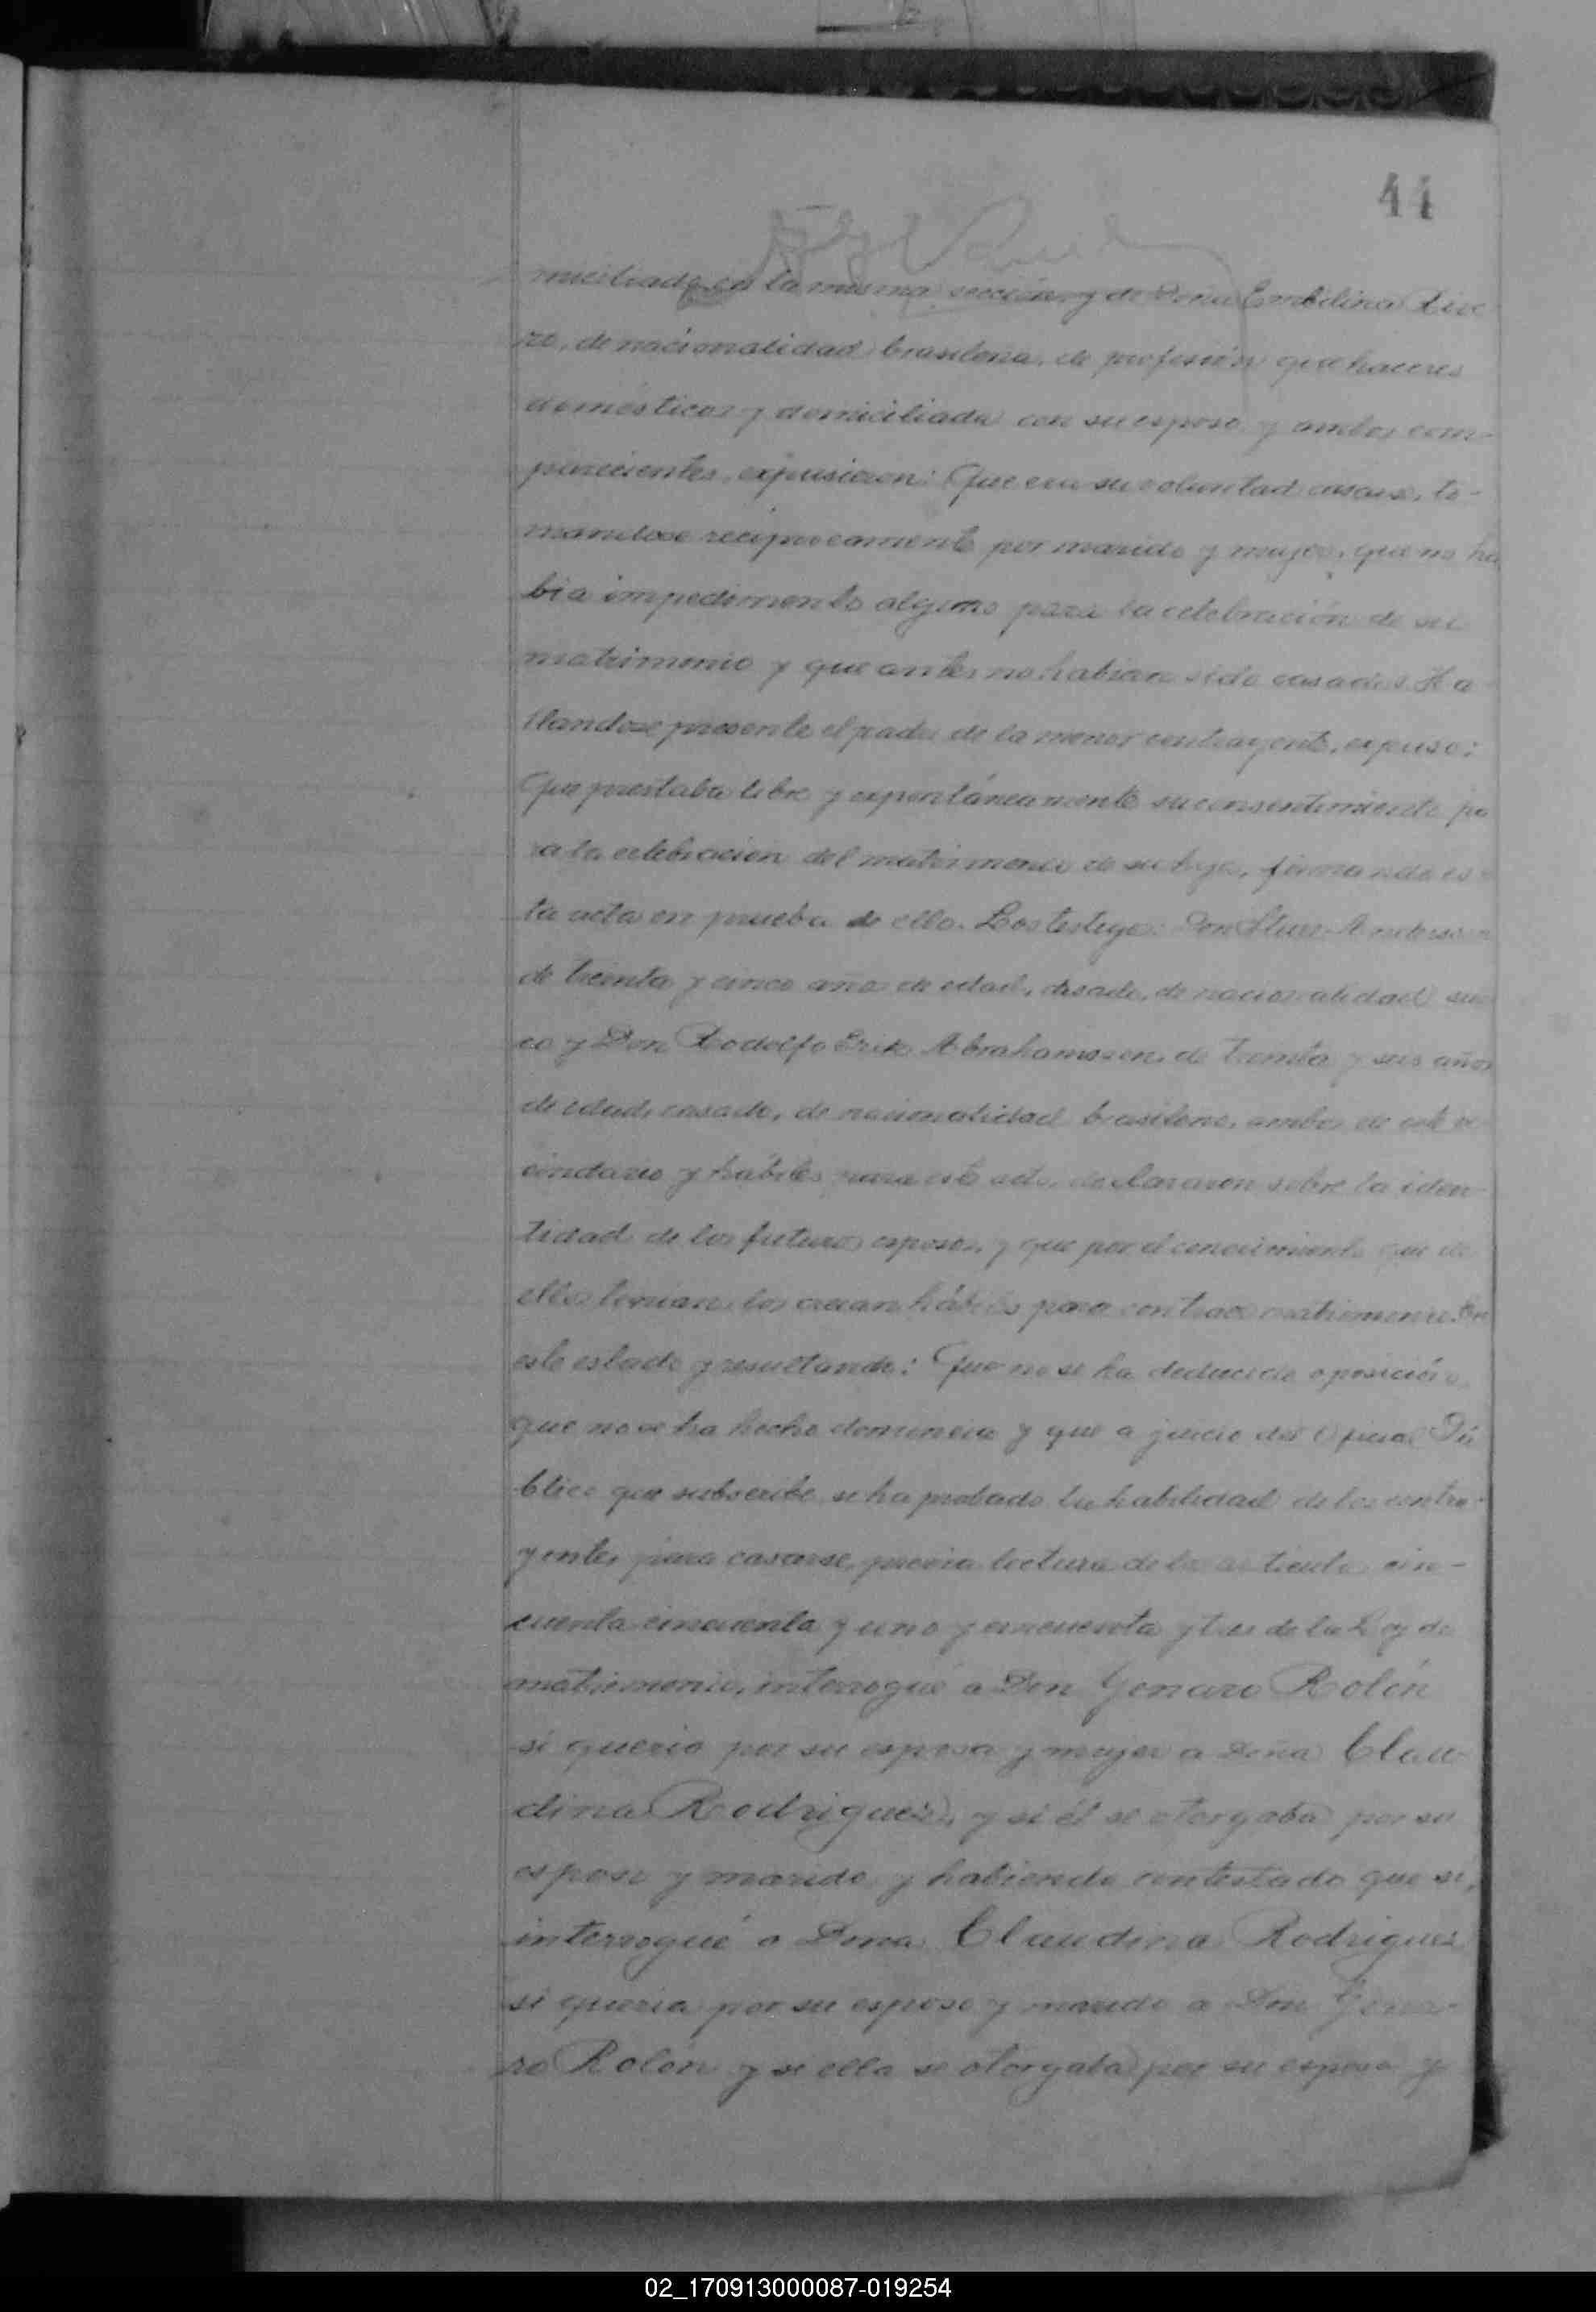 41
miciliado en la misma sección y de Doña Embilina Rive
ro, de nacionalidad brasileña, de profesión quehaceres
domésticos y domiciliada con su esposo y ambos com-
parecientes, expusieron: Que era su voluntad casarse, to-
mandose reciprocamente por marido y mujer, que no ha
bia impedimento alguno para la celebración de su
matrimonio y que antes no habian sido casados. Ha
llandose presente el padre de la menor contrayente, expuso:
Que prestaba libre y expontáneamente su consentimiento pa
ra la celebracion del matrimonio de su hija, firmando es
ta acta en prueba de ello. Los testigos: Don
de treinta y cinco años de edad, casado, de nacionalidad sue
co y Don Rodolfo Erik Abrahamson, de treinta y seis años
de edad, casado, de nacionalidad brasileno, ambos de este ve
cindario y hábiles para este acto, declararon sobre la iden
tidad de los futuros esposos, y que por el conocimiento que de
ellos tenian, los creian hábiles para contraer matrimonio. En
este estado y resultando: Que no se ha deducido oposición,
que no se ha hecho denuncia y que a juicio del Oficial Pú
blico que subscribe se ha probado la habilidad de los contra-
yentes para casarse, previa lectura de los articulos cin-
cuenta cincuenta y uno y cincuenta y tres de la Ley de
matrimonio, interrogué a Don Genaro Rolón
si queria por su esposa y mujer a Doña Clau
dina Rodriguez, y si él se otorgaba por su
esposo y marido y habiendo contestado que si,
interrogué a Dona Claudina Rodriguez
si queria por su esposo y marido a Don Gena-
ro Rolón y si ella se otorgaba por su esposa y
02_170913000087-019254